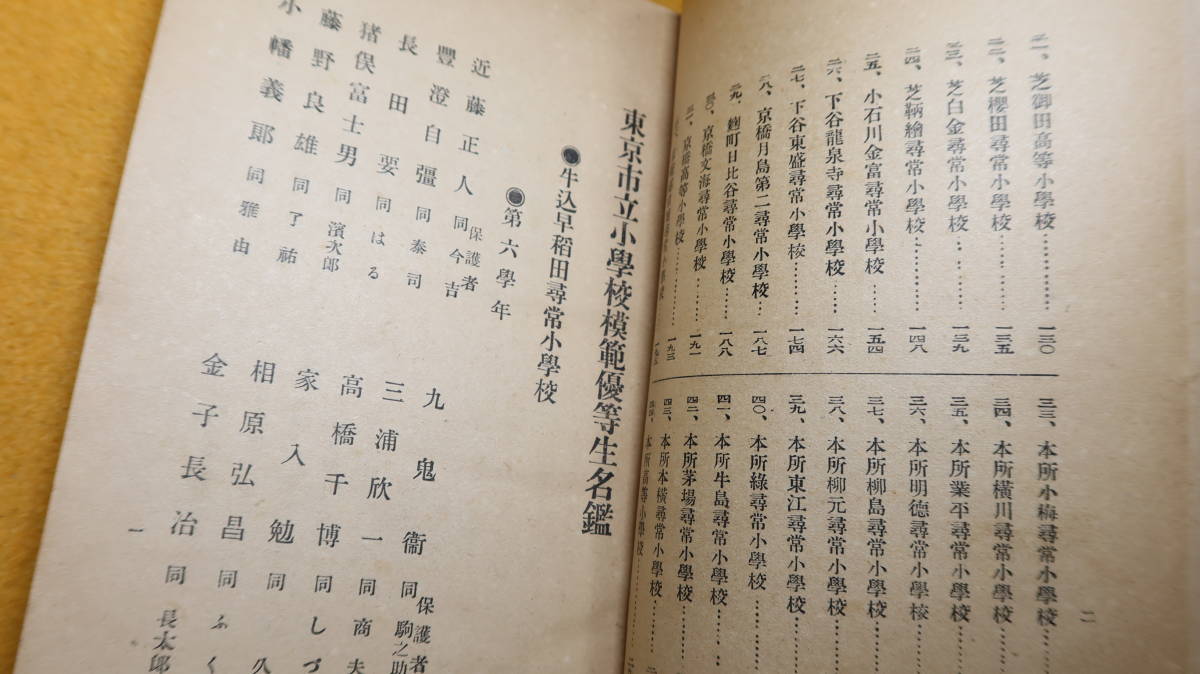 二
二一、芝御田高等小學校…………一三〇
二二、芝櫻田尋常小學校…………一三五
二三、芝白金尋常小學校…………一三九
二四、芝鞆繪尋常小學校…………一四八
二五、小石川金富尋常小學校……一五四
二六、下谷龍泉寺尋常小學校……一六六
二七、下谷東盛尋常小學校………一七四
二八、京橋月島第二尋常小學校…一八七
二九、麹町日比谷尋常小學校……一八八
三〇、京橋文海尋常小學校………一九一
三一、京橋高等小學校……………一九三
三三、本所小梅尋常小學校
三四、本所橫川尋常小學校
三五、本所業平尋常小學校
三六、本所明德尋常小學校
三七、本所柳島尋常小學校
三八、本所柳元尋常小學校
三九、本所東江尋常小學校
四〇、本所綠尋常小學校
四一、本所牛島尋常小學校
四二、本所茅場尋常小學校
四三、本所本橫尋常小學校
四四、本所高等小學校
東京市立小學校模範優等生名鑑
●牛込早稻田尋常小學校
●第六學年
近藤正人 保護者 同今吉
豐澄自彊 同泰司
長田要 同はる
猪俣富士男 同濱次郎
藤野良雄 同了祐
小幡義郎 同雅由
九鬼衞 保護者 同駒之助
三浦欣一 同商夫
高橋千博 同しづ
家入勉 同久
相原弘昌 同ふく
金子長冶 同長太郎
一